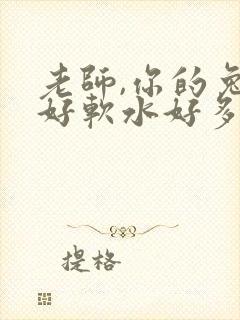 老師,你的兔
好軟水好多
提格